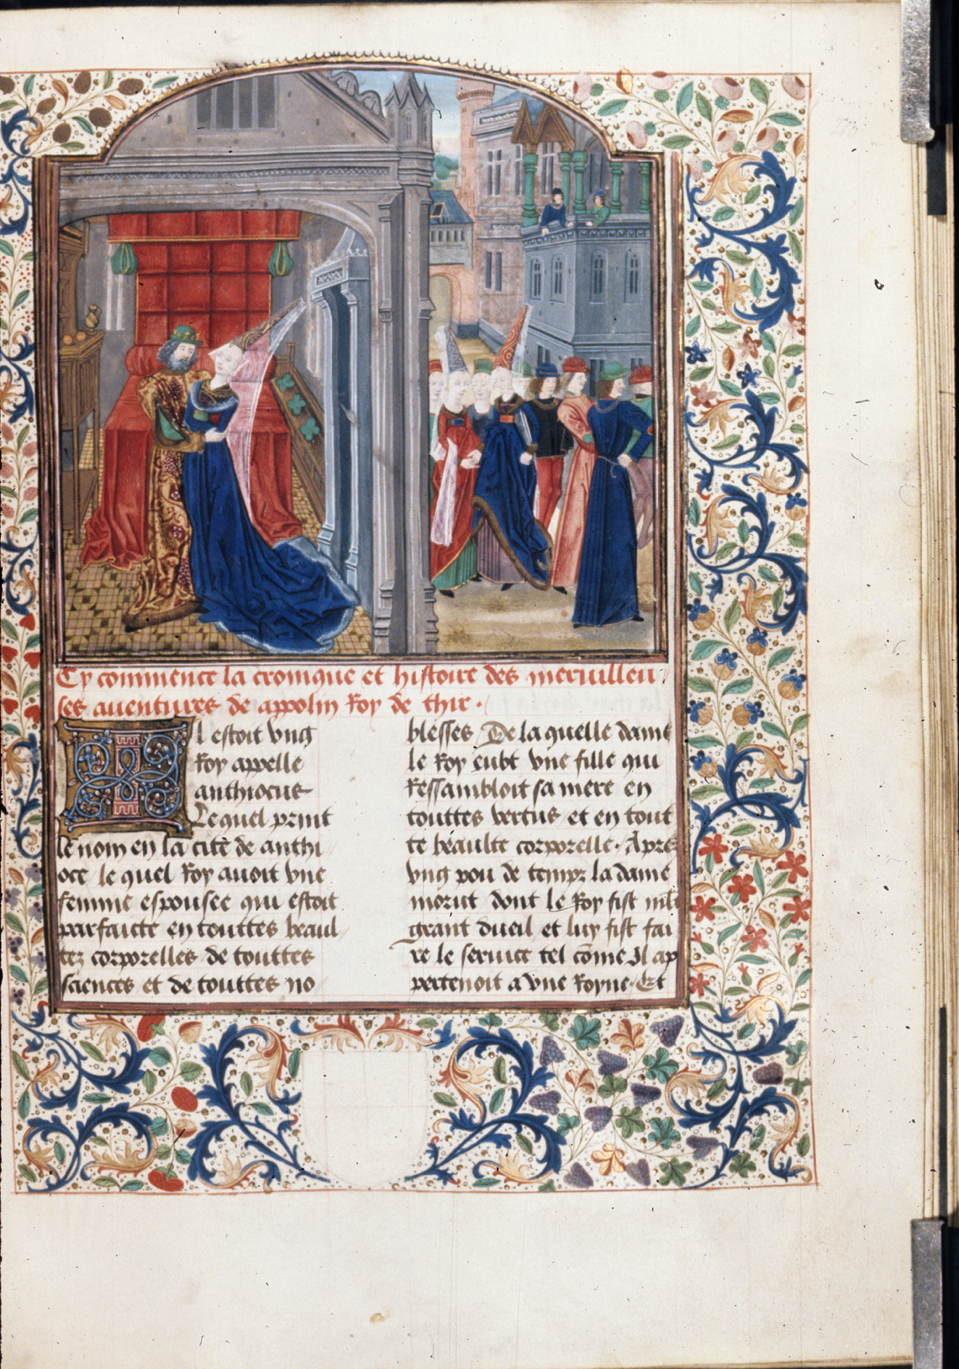 Cy commence la cronique et histoire des merueilleu
ses auentures de appolin Roy de thir.
Il estoit vng
Roy appelle
anthiocus
Lequel print
le nom en la cite de anthi
oce le quel Roy auoit vne
femme espousee qui estoit
parfaicte en touttes beaul
tez corporelles de touttes
sciences et de touttes no
blesses De la quelle dame
le Roy eubt vne fille qui
Ressambloit sa mere en
touttes vertus et en tout
te beaulte corporelle. Apres
vng pou de temps la dame
morut dont le Roy fist mlt
grant dueil et luy fist fai
re le seruice tel cõme Il ap
pertenoit a vne Royne. Et